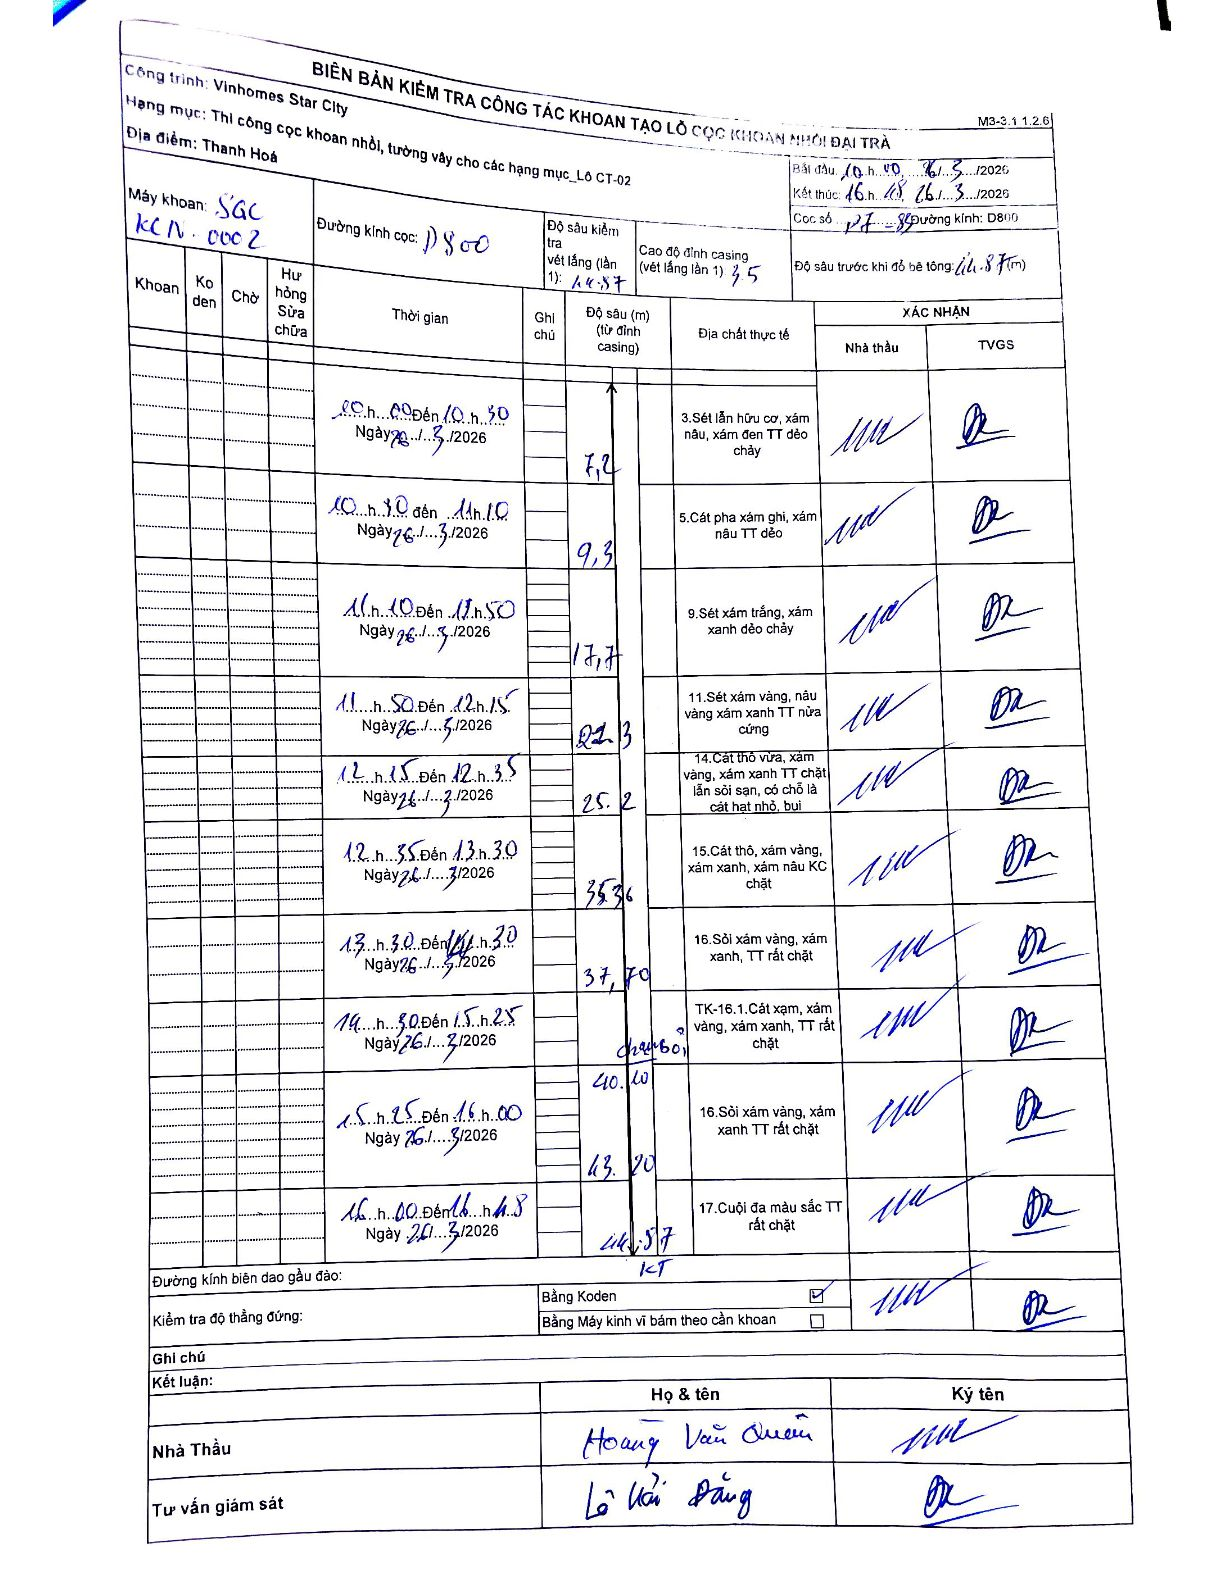 BIÊN BẢN KIỂM TRA CÔNG TÁC KHOAN TẠO LỖ CỌC KHOAN NHỒI ĐẠI TRÀ
M3-3.1 1.2.6
Công trình: Vinhomes Star City
Hạng mục: Thi công cọc khoan nhồi, tường vây cho các hạng mục_Lô CT-02
Địa điểm: Thanh Hoá
Bắt đầu: 10 h 00, 26/3/2026
Kết thúc: 16 h 48, 26/3/2026
Cọc số P7-89 Đường kính: D800
Máy khoan: SGC
KCN.0002
Đường kính cọc: D800
Độ sâu kiểm tra
vét lắng (lần 1): 44.87
Cao độ đỉnh casing
(vét lắng lần 1): 3,5
Độ sâu trước khi đổ bê tông: 44.87(m)
Khoan
Ko den
Chờ
Hư hỏng Sửa chữa
Thời gian
Ghi chú
Độ sâu (m)
(từ đỉnh casing)
Địa chất thực tế
XÁC NHẬN
Nhà thầu
TVGS
10 h 00 Đến 10 h 30
Ngày 26/3/2026
7,2
3.Sét lẫn hữu cơ, xám
nâu, xám đen TT dẻo
chảy
10 h 30 đến 11h10
Ngày 26/3/2026
9,3
5.Cát pha xám ghi, xám
nâu TT dẻo
11 h 10 Đến 11 h 50
Ngày 26/3/2026
17,7
9.Sét xám trắng, xám
xanh dẻo chảy
11 h 50 Đến 12h15
Ngày 26/3/2026
3
11.Sét xám vàng, nâu
vàng xám xanh TT nửa
cứng
12 h 15 Đến 12 h 35
Ngày 26/3/2026
25.2
14.Cát thô vừa, xám
vàng, xám xanh TT chặt
lẫn sỏi sạn, có chỗ là
cát hạt nhỏ, bụi
12 h 35 Đến 13 h 30
Ngày 26/3/2026
15.Cát thô, xám vàng,
xám xanh, xám nâu KC
chặt
13 h 30 Đến 14 h 30
Ngày 26/3/2026
37,70
16.Sỏi xám vàng, xám
xanh, TT rất chặt
14 h 30 Đến 15 h 25
Ngày 26/3/2026
TK-16.1.Cát xạm, xám
vàng, xám xanh, TT rất
chặt
40.10
15 h 25 Đến 16 h 00
Ngày 26/3/2026
43.20
16.Sỏi xám vàng, xám
xanh TT rất chặt
16 h 00 Đến 16 h 48
Ngày 26/3/2026
44.87
17.Cuội đa màu sắc TT
rất chặt
KT
Đường kính biên dao gầu đào:
Kiểm tra độ thẳng đứng:
Bằng Koden
Bằng Máy kinh vĩ bám theo cần khoan
Ghi chú
Kết luận:
Họ & tên
Ký tên
Nhà Thầu
Hoàng Văn Quân
Tư vấn giám sát
Lê Hải Đăng